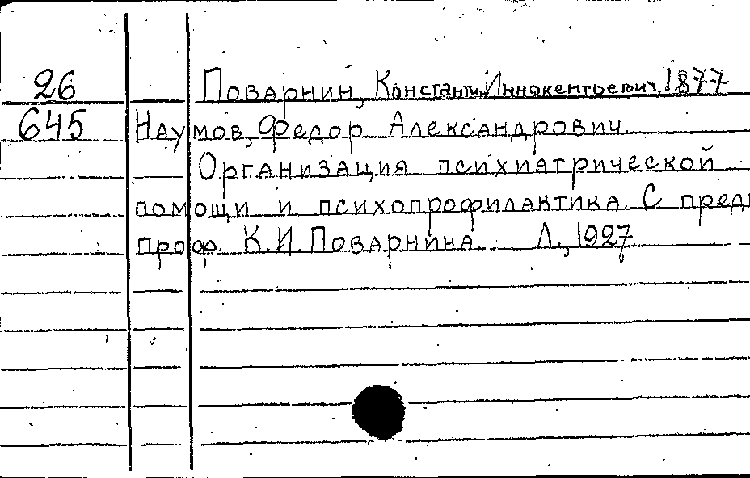 26 Поварнин, Константин Иннокентьевич, 1877
645 Наумов, Федор Александрович
Организация психиатрической
помощи и психопрофилактика. С пред
проф. К.И. Поварнина. Л., 1927